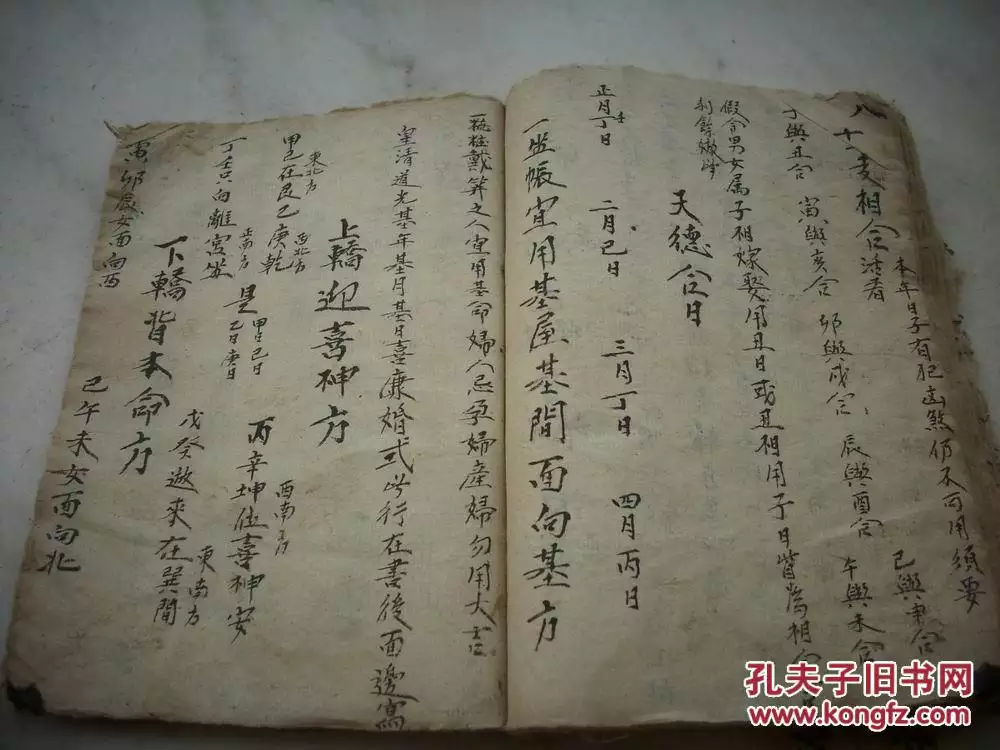 八 十二支相合活看
本年日子有犯凶煞仍不可用須要
子與丑合 寅與亥合 卯與戌合 辰與酉合 午與未合
巳與申合
假令男女属子相嫁娶用丑日或丑相用子日皆為相合
天德合日
正月丁日 二月巳日 三月丁日 四月丙日
一坐帳宜用基屋基間面向基方
一梳粧戴筓之人宜用基命婦人忌孕婦產婦勿用大吉
皇清道光基年基月基日喜溓婚式此行在書後面邊寫
上轎迎喜神方
東北方 西北方
甲己在艮乙庚乾
是 甲日己日 乙日庚日
丙辛坤位喜神安
西南方
丁壬只向離宮坐
正南方
戊癸遊來在巽間
東南方
下轎背本命方
寅卯辰女面向西
巳午未女面向北
孔夫子旧书网
www.kongfz.com